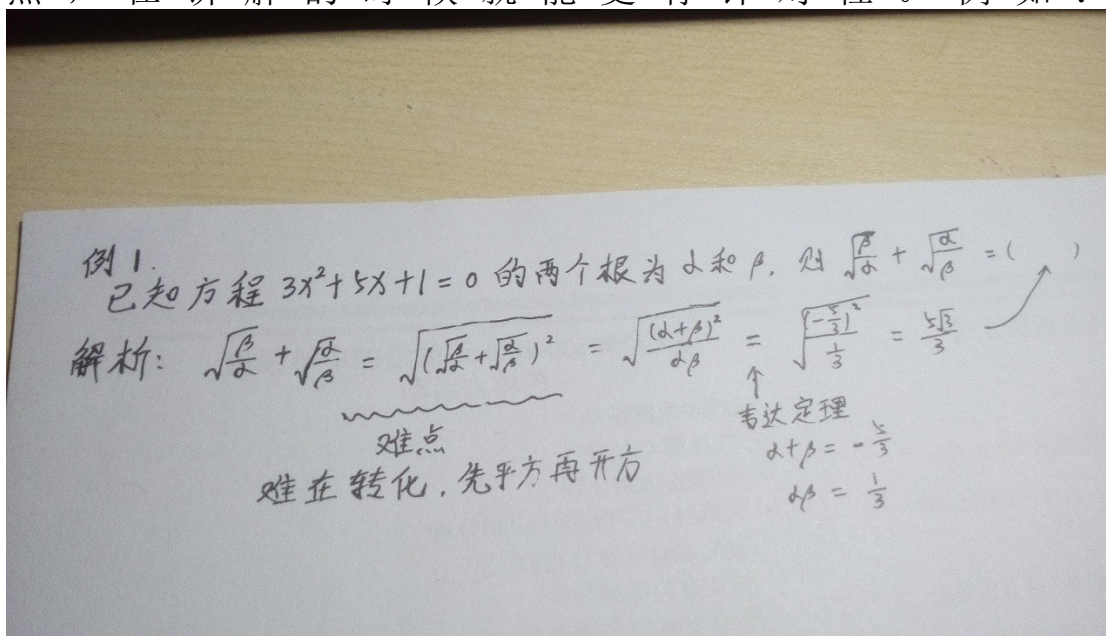 点，在讲解的时候就能更有针对性。例如：
例1.
已知方程 3x²+5x+1=0 的两个根为 α和β, 则 √(β/α) + √(α/β) = (  )
解析: √(β/α) + √(α/β) = √((√(β/α)+√(α/β))²) = √((α+β)²/αβ) = √((-5/3)²/(1/3)) = 5√3/3
难点
韦达定理
α+β = -5/3
难在转化, 先平方再开方
αβ = 1/3